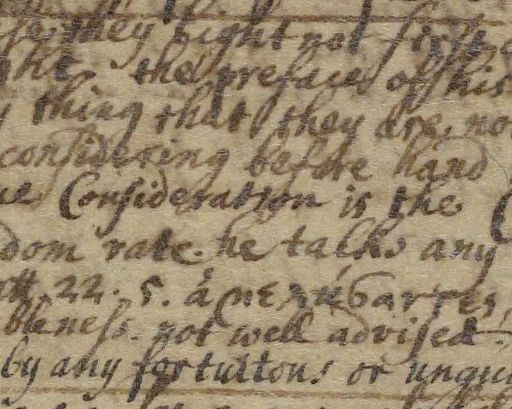 they fight not first
the preface of his
thing that they are no
considering before hand
Consideration is the
dom rate. he talks any
22. 5. ἀμελήσαντες,
bleness. not well advised.
by any fortuitous or ungui